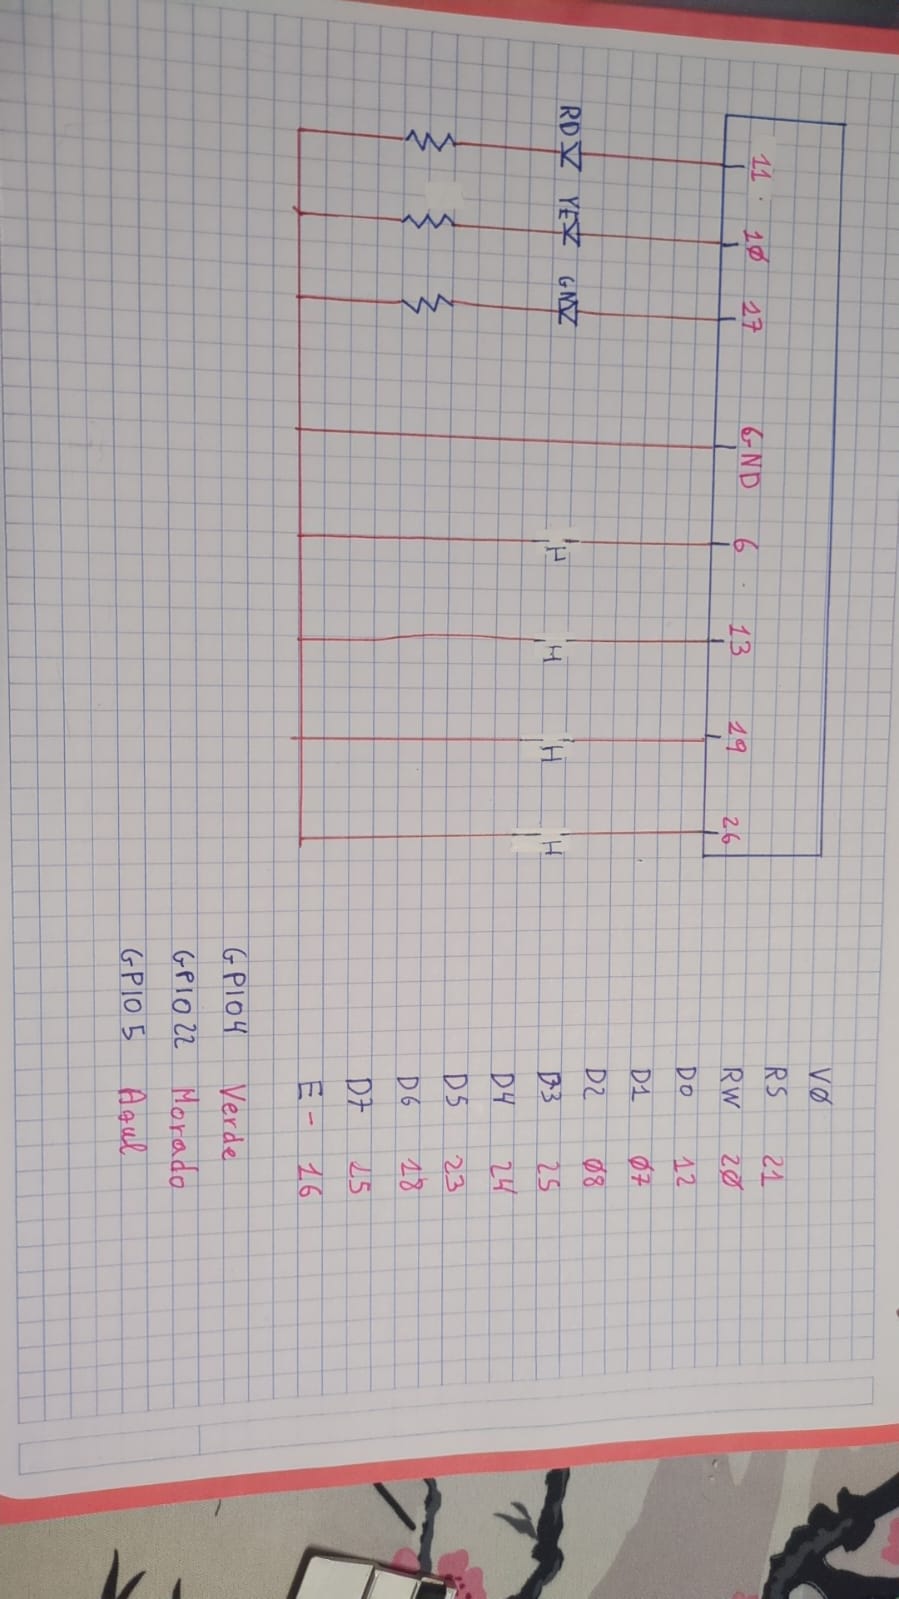 11 10 17 GND 6 13 19 26
RD YE GN
H H H H
VØ
RS 21
RW 2Ø
D0 12
D1 Ø7
D2 Ø8
D3 25
D4 24
D5 23
D6 18
D7 15
E - 16
GPIO4 Verde
GPIO22 Morado
GPIO5 Azul